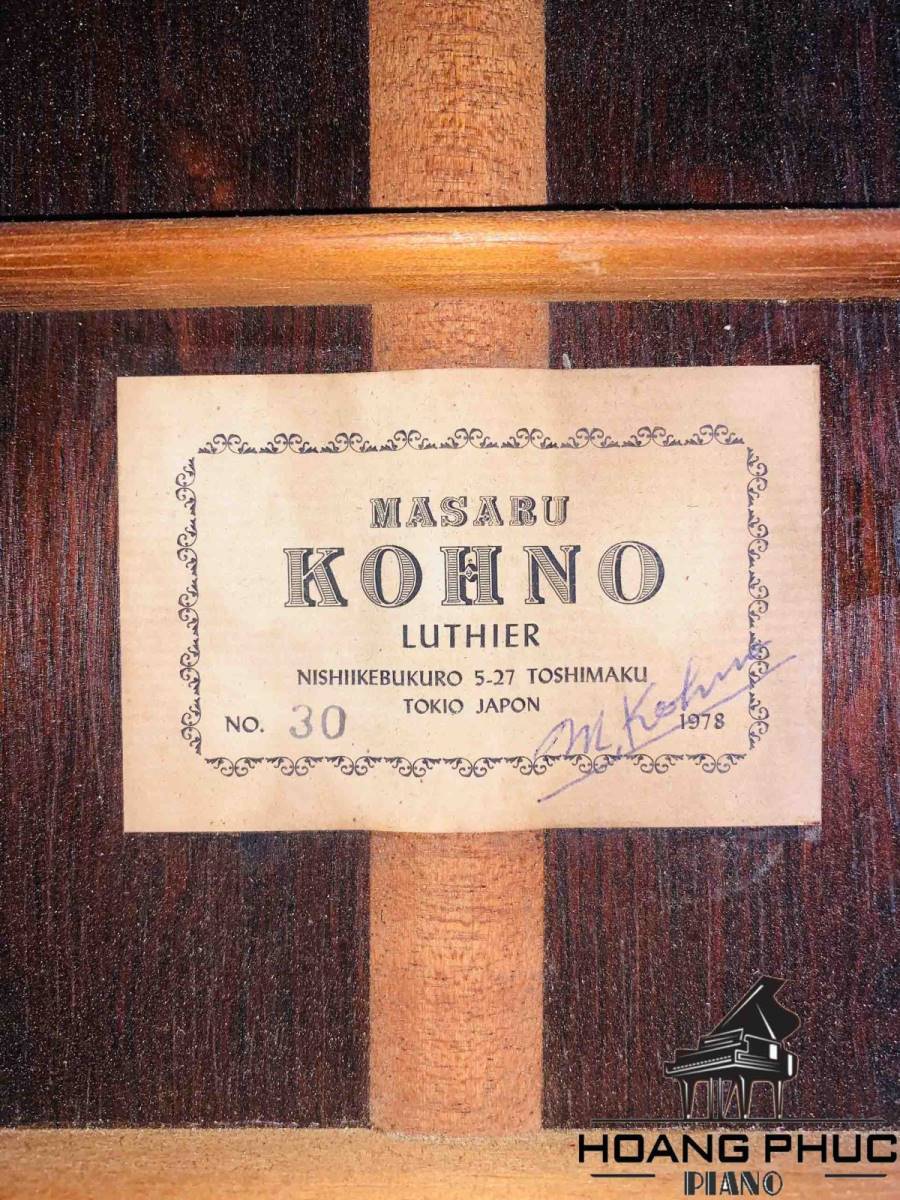 MASARU
KOHNO
LUTHIER
NISHIIKEBUKURO 5-27 TOSHIMAKU
TOKIO JAPON
NO. 30
1978
M. Kohno
HOANG PHUC
PIANO